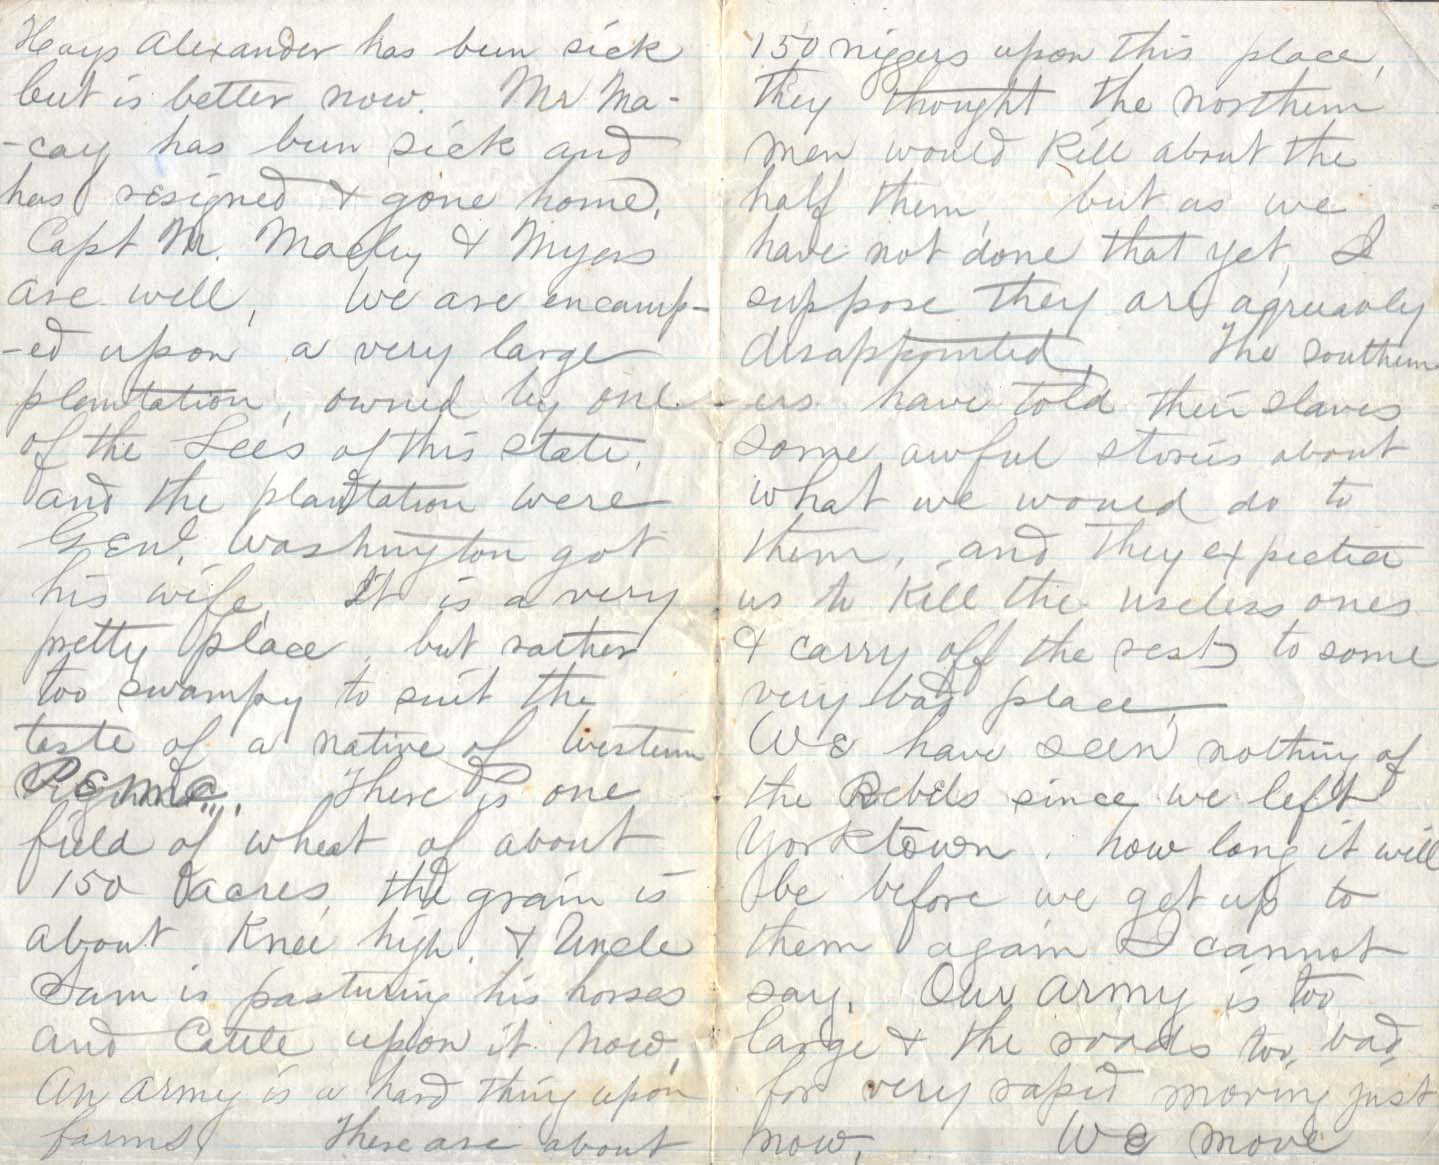 Hays Alexander has been sick
but is better now. Mr Ma-
-cay has been sick and
has resigned & gone home.
Capt M. Macley & Myers
are well, We are encamp-
-ed upon a very large
plantation, owned by one
of the Lee's of this state,
and the plantation were
Genl. Washington got
his wife, It is a very
pretty place, but rather
too swampy to suit the
taste of a native of Western
Penna. There is one
field of wheat of about
150 acres, the grain is
about Knee high, & Uncle
Sam is pasturing his horses
and Cattle upon it now,
An army is a hard thing upon
farms, There are about
150 niggers upon this place,
they thought the northern
men would Kill about the
half them, but as we
have not done that yet, I
suppose they are agreeably
disappointed, The southern-
-ers have told their slaves
some awful stories about
what we would do to
them, and they expected
us to Kill the useless ones
& carry off the rest to some
very bad place,
We have seen nothing of
the Rebels since we left
Yorktown, how long it will
be before we get up to
them again I cannot
say, Our army is too
large & the roads too bad
for very rapid moving just
now, We move